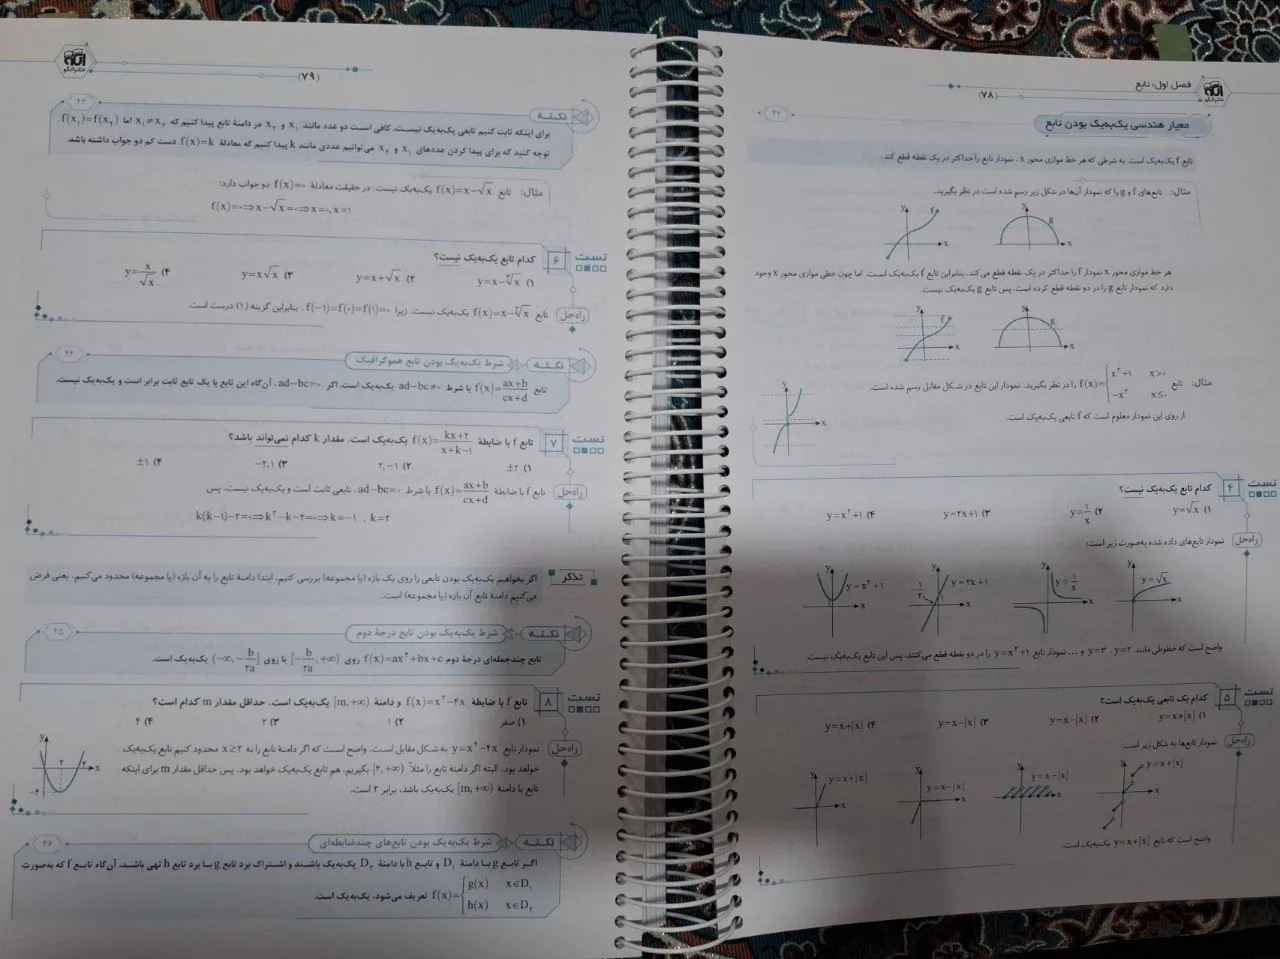 فصل اول: تابع
(۷۸)
معیار هندسی یک‌به‌یک بودن تابع
۴۲
تابع f یک‌به‌یک است، به شرطی که هر خط موازی محور x، نمودار تابع را حداکثر در یک نقطه قطع کند.
مثال: تابع‌های f و g را که نمودار آن‌ها در شکل زیر رسم شده است در نظر بگیرید.
y f x
y g x
هر خط موازی محور x نمودار f را حداکثر در یک نقطه قطع می‌کند، بنابراین تابع f یک‌به‌یک است. اما چون خطی موازی محور x وجود
دارد که نمودار تابع g را در دو نقطه قطع کرده است، پس تابع g یک‌به‌یک نیست.
y f x
y g x
مثال: تابع f(x)={x²+۱ x>۰
−x² x≤۰ را در نظر بگیرید. نمودار این تابع در شکل مقابل رسم شده است.
از روی این نمودار معلوم است که f تابعی یک‌به‌یک است.
تست ۴ کدام تابع یک‌به‌یک نیست؟
۱) y=√x ۲) y=۱/x ۳) y=۲x+۱ ۴) y=x²+۱
راه‌حل نمودار تابع‌های داده شده به‌صورت زیر است:
y=√x y=۱/x y=۲x+۱ −۱/۲ y=x²+۱
واضح است که خطوطی مانند y=۲، y=۳ و ... نمودار تابع y=x²+۱ را در دو نقطه قطع می‌کنند، پس این تابع یک‌به‌یک نیست.
تست ۵ کدام یک تابعی یک‌به‌یک است؟
۱) y=x+[x] ۲) y=x−[x] ۳) y=x−|x| ۴) y=x+|x|
راه‌حل نمودار تابع‌ها به شکل زیر است:
y=x+[x] y=x−[x] y=x−|x| y=x+|x|
واضح است که تابع y=x+[x] یک‌به‌یک است.
(۷۹)
نکته ۴۳
برای اینکه ثابت کنیم تابعی یک‌به‌یک نیست، کافی است دو عدد مانند x₁ و x₂ در دامنهٔ تابع پیدا کنیم که x₁≠x₂ اما f(x₁)=f(x₂).
توجه کنید که برای پیدا کردن عددهای x₁ و x₂ می‌توانیم عددی مانند k پیدا کنیم که معادلهٔ f(x)=k دست کم دو جواب داشته باشد.
مثال: تابع f(x)=x−√x یک‌به‌یک نیست. در حقیقت معادلهٔ f(x)=۰ دو جواب دارد:
f(x)=۰⇒x−√x=۰⇒x=۰, x=۱
تست ۶ کدام تابع یک‌به‌یک نیست؟
۱) y=x−∛x ۲) y=x+√x ۳) y=x√x ۴) y=x/√x
راه‌حل تابع f(x)=x−∛x یک‌به‌یک نیست، زیرا f(−۱)=f(۰)=f(۱)=۰. بنابراین گزینهٔ (۱) درست است.
نکته شرط یک‌به‌یک بودن تابع هموگرافیک ۴۴
تابع f(x)=(ax+b)/(cx+d) با شرط ad−bc≠۰ یک‌به‌یک است. اگر ad−bc=۰، آن‌گاه این تابع با یک تابع ثابت برابر است و یک‌به‌یک نیست.
تست ۷ تابع f با ضابطهٔ f(x)=(kx+۲)/(x+k−۱) یک‌به‌یک است. مقدار k کدام نمی‌تواند باشد؟
۱) ±۲ ۲) ۲,−۱ ۳) −۲,۱ ۴) ±۱
راه‌حل تابع f با ضابطهٔ f(x)=(ax+b)/(cx+d) با شرط ad−bc=۰، تابعی ثابت است و یک‌به‌یک نیست. پس
k(k−۱)−۲=۰⇒k²−k−۲=۰⇒k=−۱ , k=۲
تذکر اگر بخواهیم یک‌به‌یک بودن تابعی را روی یک بازه (یا مجموعه) بررسی کنیم، ابتدا دامنهٔ تابع را به آن بازه (یا مجموعه) محدود می‌کنیم، یعنی فرض
می‌کنیم دامنهٔ تابع آن بازه (یا مجموعه) است.
نکته شرط یک‌به‌یک بودن تابع درجهٔ دوم ۴۵
تابع چندجمله‌ای درجهٔ دوم f(x)=ax²+bx+c روی [−b/۲a, +∞) یا روی (−∞, −b/۲a] یک‌به‌یک است.
تست ۸ تابع f با ضابطهٔ f(x)=x²−۴x و دامنهٔ [m,+∞) یک‌به‌یک است. حداقل مقدار m کدام است؟
۱) صفر ۲) ۱ ۳) ۲ ۴) ۴
راه‌حل نمودار تابع y=x²−۴x به شکل مقابل است. واضح است که اگر دامنهٔ تابع را به x≥۲ محدود کنیم تابع یک‌به‌یک
خواهد بود. البته اگر دامنهٔ تابع را مثلاً [۴,+∞) بگیریم، هم تابع یک‌به‌یک خواهد بود. پس حداقل مقدار m برای اینکه
تابع با دامنهٔ [m,+∞) یک‌به‌یک باشد، برابر ۲ است.
y ۲ ۴ x −۴
نکته شرط یک‌به‌یک بودن تابع‌های چندضابطه‌ای ۴۶
اگر تابع g با دامنهٔ D₁ و تابع h با دامنهٔ D₂ یک‌به‌یک باشند و اشتراک برد تابع g با برد تابع h تهی باشد، آن‌گاه تابع f که به‌صورت
f(x)={g(x) x∈D₁
h(x) x∈D₂ تعریف می‌شود، یک‌به‌یک است.